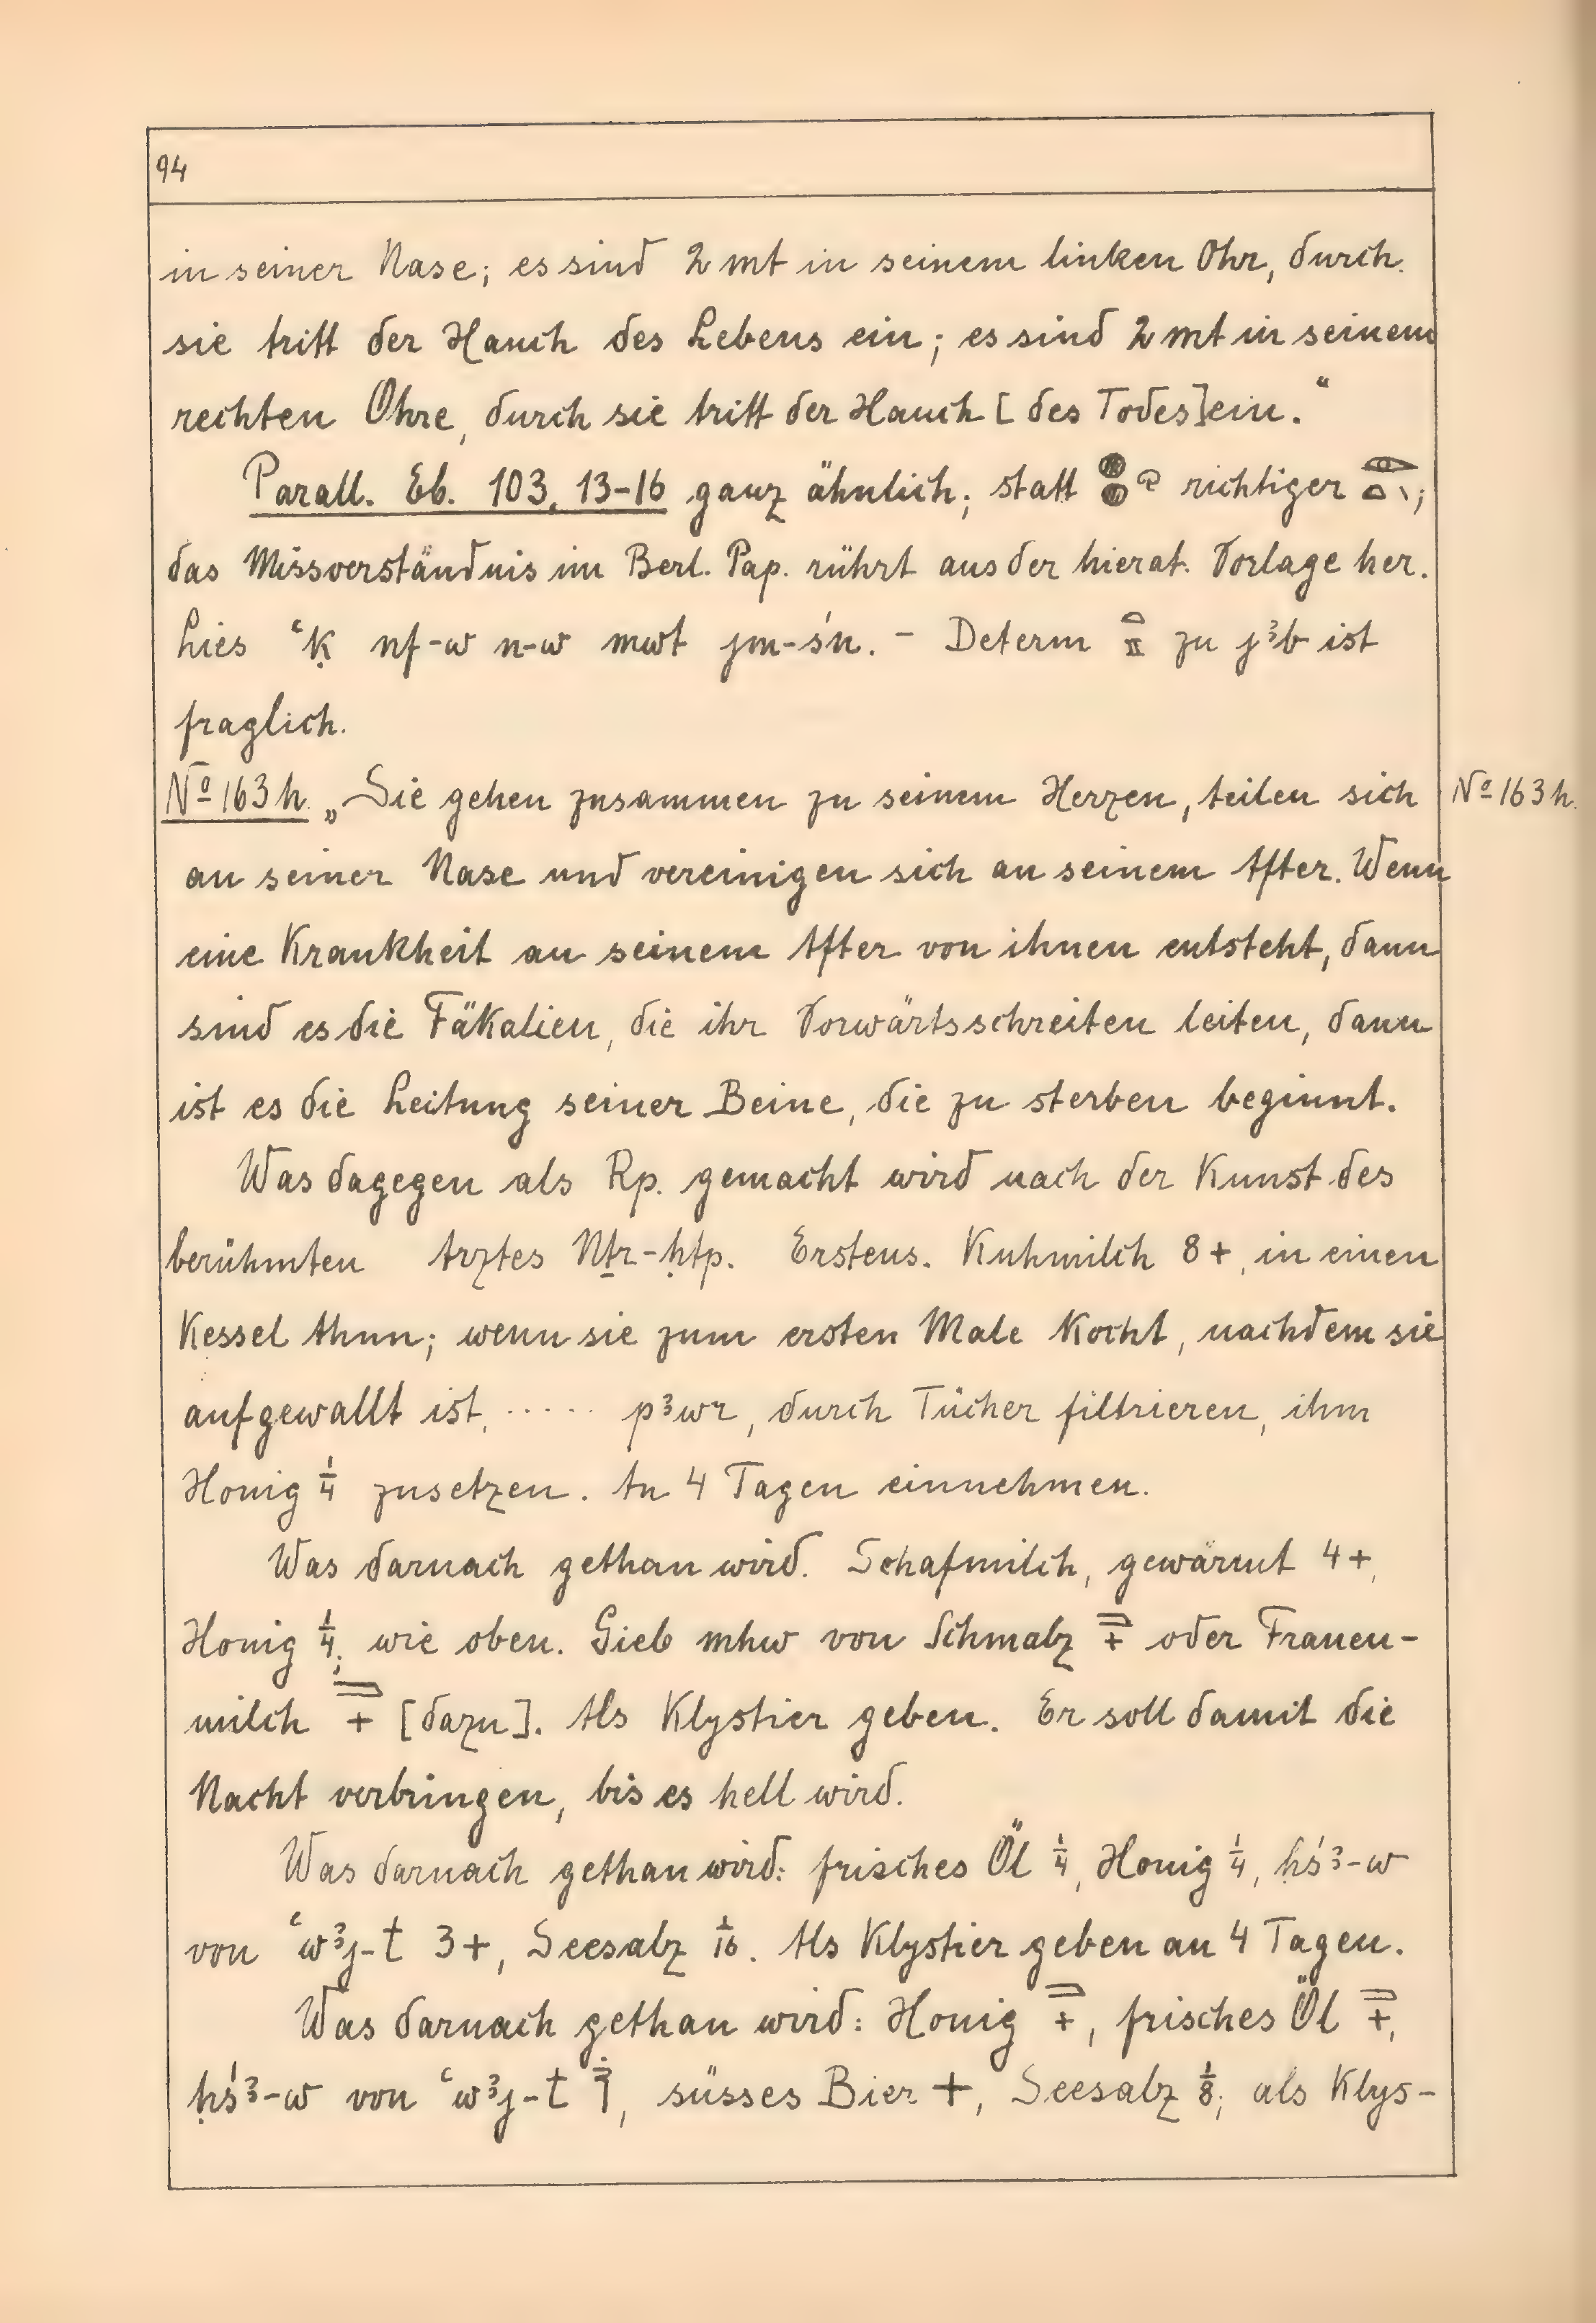 94
in seiner Nase; es sind 2 mt in seinem linken Ohr, durch
sie tritt der Hauch des Lebens ein; es sind 2 mt in seinem
rechten Ohre, durch sie tritt der Hauch [des Todes] ein.“
Parall. Eb. 103, 13-16 ganz ähnlich; statt 𓐍𓐍𓏲 richtiger 𓁹𓏏𓏭;
das Missverständnis im Berl. Pap. rührt aus der hierat. Vorlage her.
Lies ꜥḳ nf-w n-w mwt jm-śn. - Determ zu jꜣb ist
fraglich.
Nº 163 h. „Sie gehen zusammen zu seinem Herzen, teilen sich
Nº 163 h.
an seiner Nase und vereinigen sich an seinem After. Wenn
eine Krankheit an seinem After von ihnen entsteht, dann
sind es die Fäkalien, die ihr Vorwärtsschreiten leiten, dann
ist es die Leitung seiner Beine, die zu sterben beginnt.
Was dagegen als Rp. gemacht wird nach der Kunst des
berühmten Arztes Nṯr-ḥtp. Erstens. Kuhmilch 8+, in einen
Kessel thun; wenn sie zum ersten Male kocht, nachdem sie
aufgewallt ist, ..... pꜣwr, durch Tücher filtrieren, ihm
Honig ¼ zusetzen. An 4 Tagen einnehmen.
Was darnach gethan wird. Schafmilch, gewärmt 4+,
Honig ¼; wie oben. Gieb mhw von Schmalz + oder Frauen-
milch + [dazu]. Als Klystier geben. Er soll damit die
Nacht verbringen, bis es hell wird.
Was darnach gethan wird: frisches Öl ¼, Honig ¼, ḥśꜣ-w
von ꜥwꜣj-t 3+, Seesalz 1/16. Als Klystier geben an 4 Tagen.
Was darnach gethan wird: Honig +, frisches Öl +,
ḥśꜣ-w von ꜥwꜣj-t, süsses Bier +, Seesalz ⅛; als Klys-